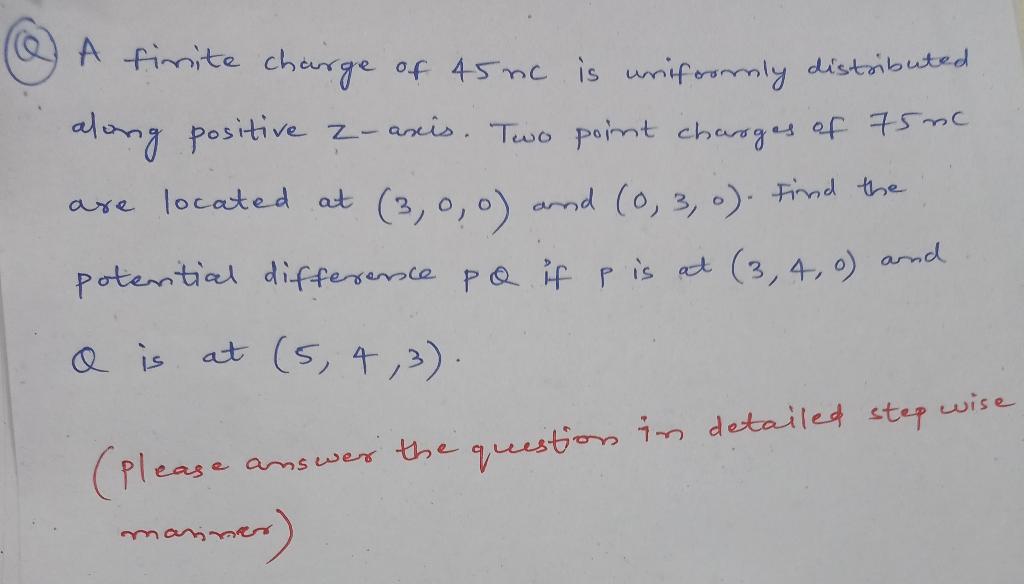 Q A finite charge of 45nc is uniformly distributed
along positive z-axis. Two point charges of 75nc
are located at (3, 0, 0) and (0, 3, 0). Find the
potential difference PQ if P is at (3, 4, 0) and
Q is at (5, 4, 3).
(Please answer the question in detailed step wise
manner)